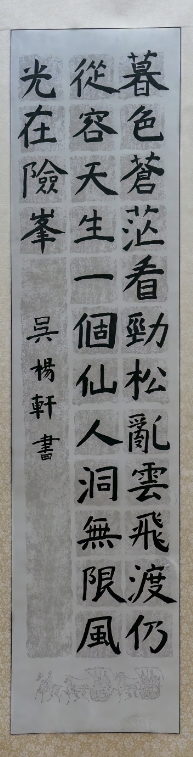 暮色蒼茫看勁松亂雲飛渡仍
從容天生一個仙人洞無限風
光在險峯
吳楊軒書